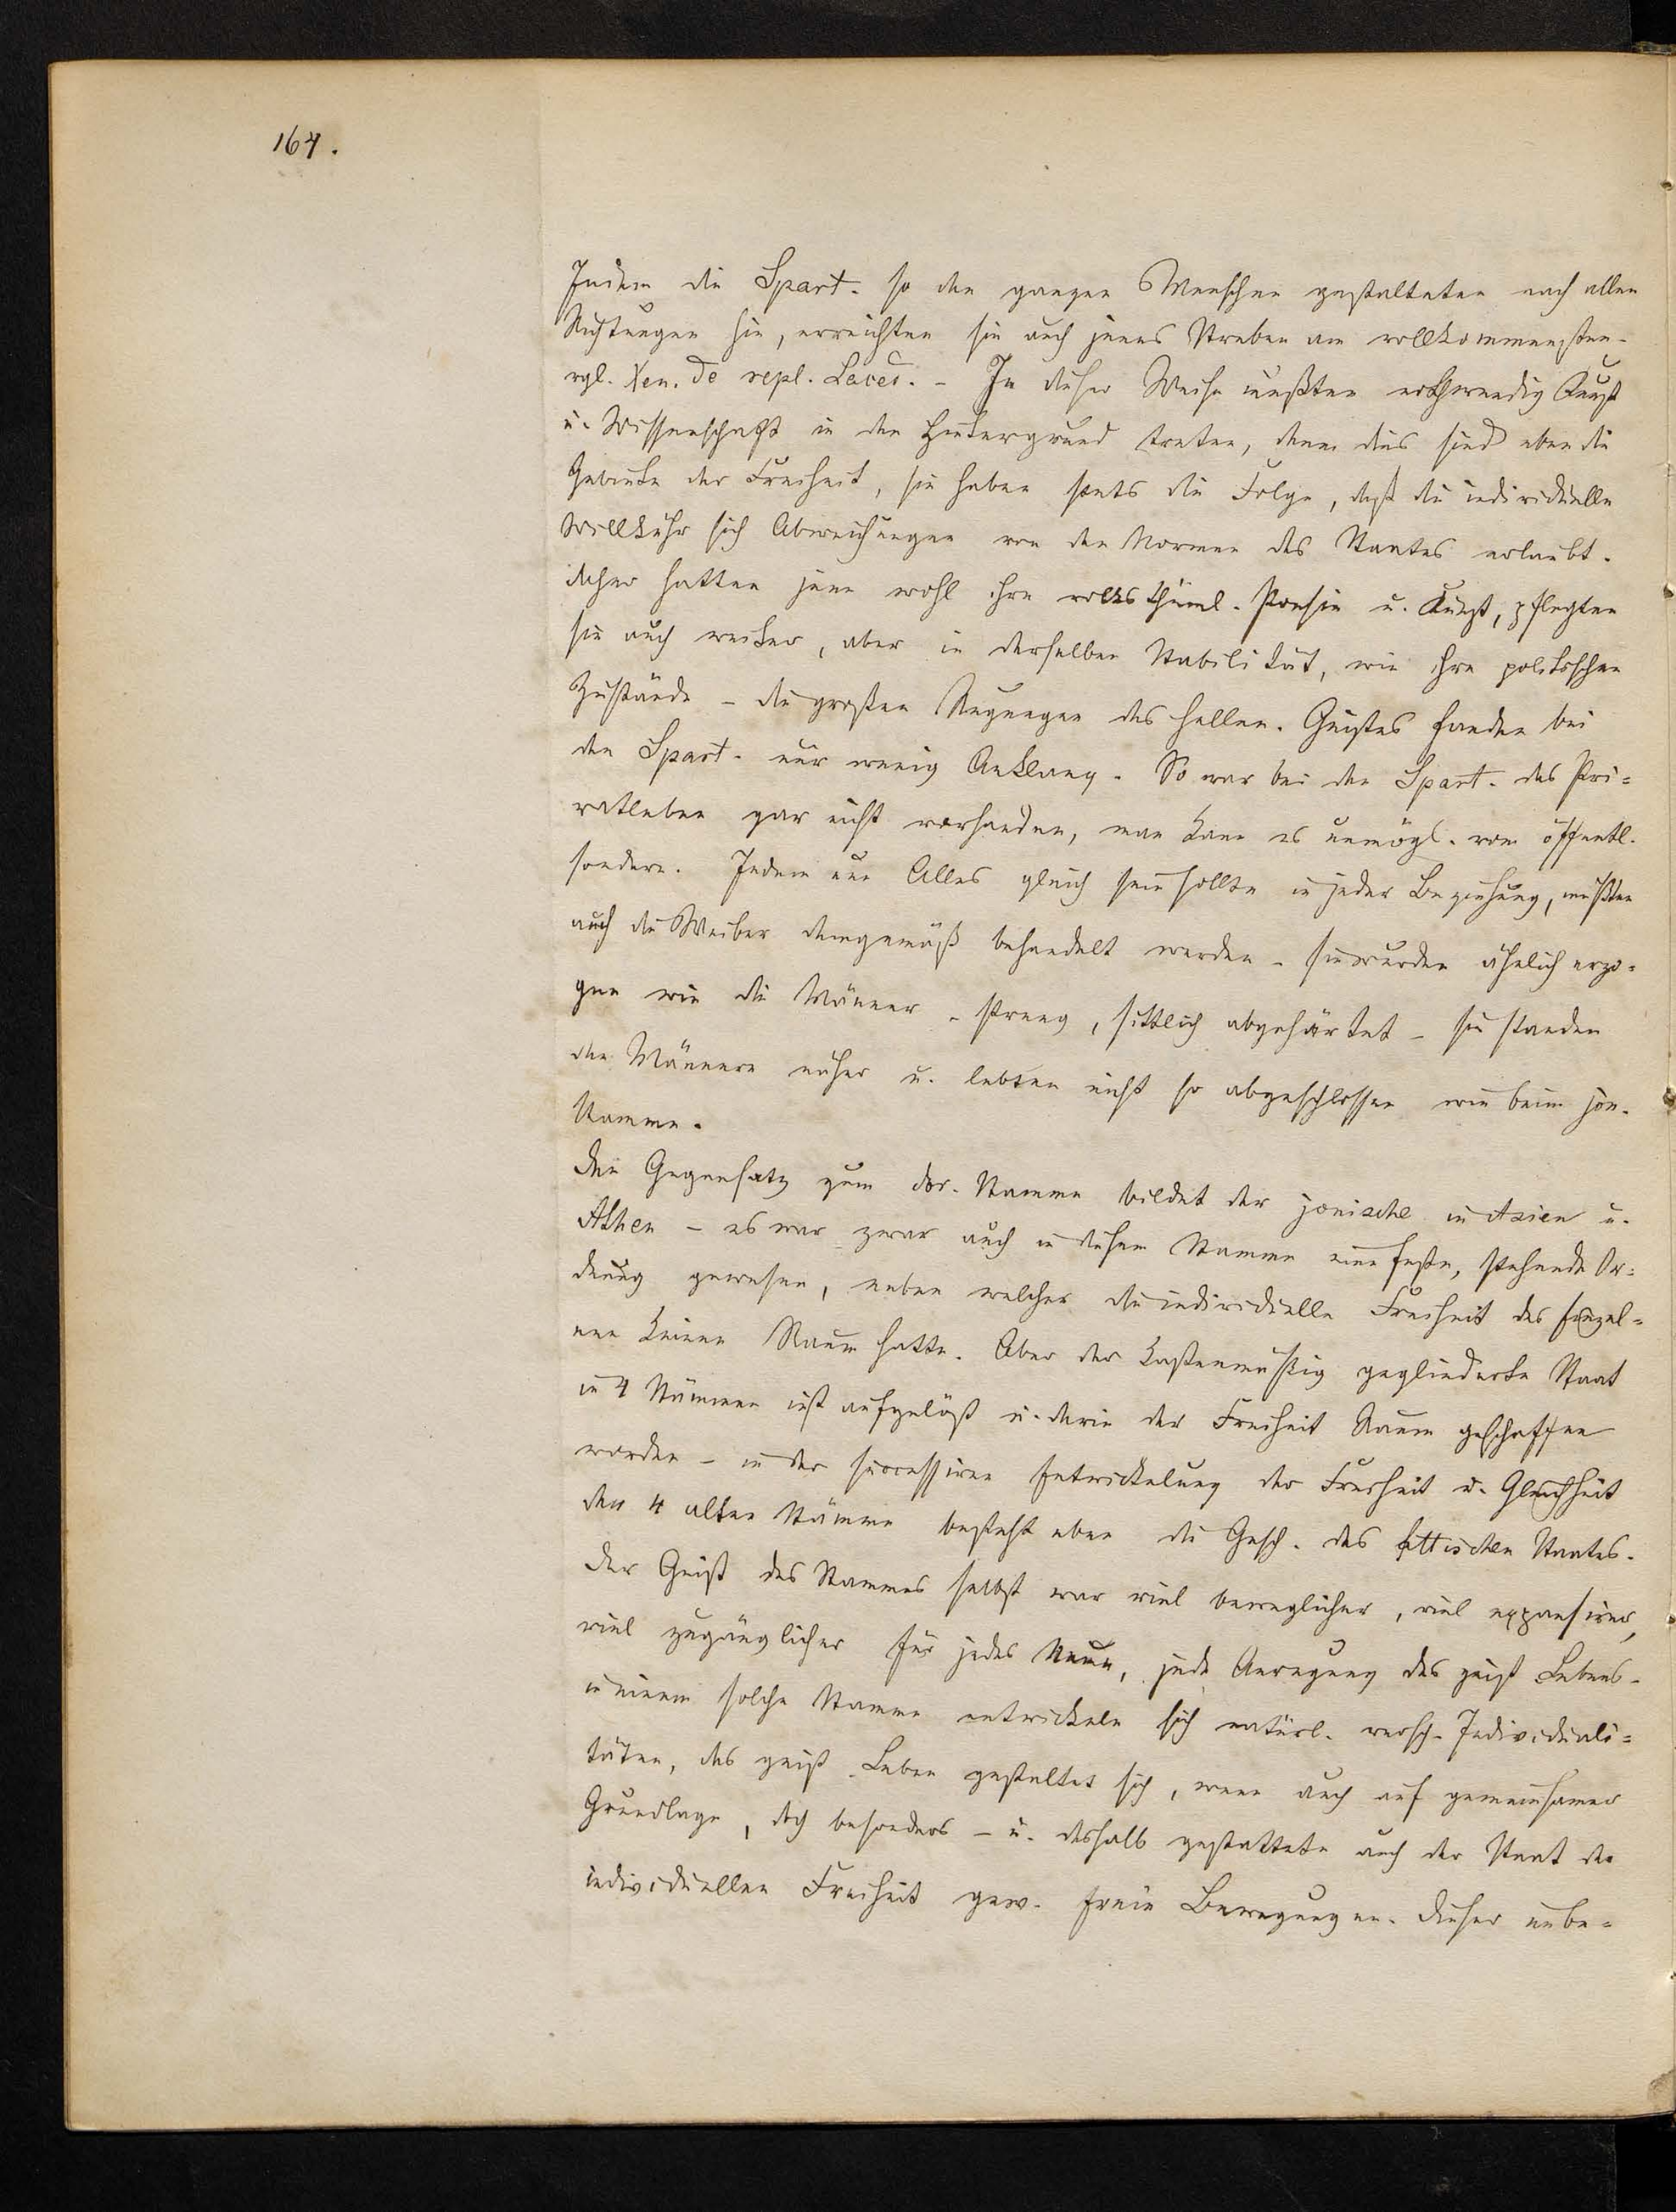 164.
Indem die Spart. so den ganzen Menschen gestalteten nach allen
Richtungen hin, erreichten sie auch jenes Streben am vollkommensten.
vgl. Xen. de repl. Laced. - In dieser Weise mußten nothwendig Kunst
u. Wissenschaft in den Hintergrund treten, denn dies sind eben die
Gebiete der Freiheit, sie haben stets die Folge, daß die individuelle
Willkühr sich Abweichungen von den Normen des Staates erlaubt.
daher hatten jene wohl ihre volksthüml. Poesie u. Kunst, pflegten
sie auch weiter, aber in derselben Stabilität, wie ihre politischen
Zustände - die großen Regungen des hellen. Geistes fanden bei
den Spart. nur wenig Anklang. So war bei den Spart. das Pri=
vatleben gar nicht vorhanden, man kann es unmögl. vom öffentl.
sondern. Indem nun Alles gleich sein sollte in jeder Beziehung, mußten
auch die Weiber demgemäß behandelt werden - sie wurden ähnlich erzo=
gen wie die Männer - streng, sittlich abgehärtet - sie standen
den Männern näher u. lebten nicht so abgeschlossen wie beim jon.
Stamme.
Den Gegensatz zum dor. Stamme bildet der jonische in Asien u.
Athen - es war zwar auch in diesem Stamme eine feste, stehende Or=
dnung gewesen, neben welcher die individuelle Freiheit des Einzel=
nen keinen Raum hatte. Aber der kastenmäßig gegliederte Staat
in 4 Stämmen ist aufgelößt u. darin der Freiheit Raum geschaffen
worden - in der successiven Entwickelung der Freiheit u. Gleichheit
der 4 alten Stämme besteht eben die Gesch. des attischen Staates.
Der Geist des Stammes selbst war viel beweglicher, viel expansiver,
viel zugänglicher für jedes Neue, jede Anregung des geist Lebens -
in einem solche Stamme entwickeln sich natürl. versch. Individuali=
täten, das geist. Leben gestaltet sich, wenn auch auf gemeinsamer
Grundlage, doch besonders - u. deshalb gestattete auch der Staat der
individuellen Freiheit gew. freie Bewegungen. Dieser unbe=